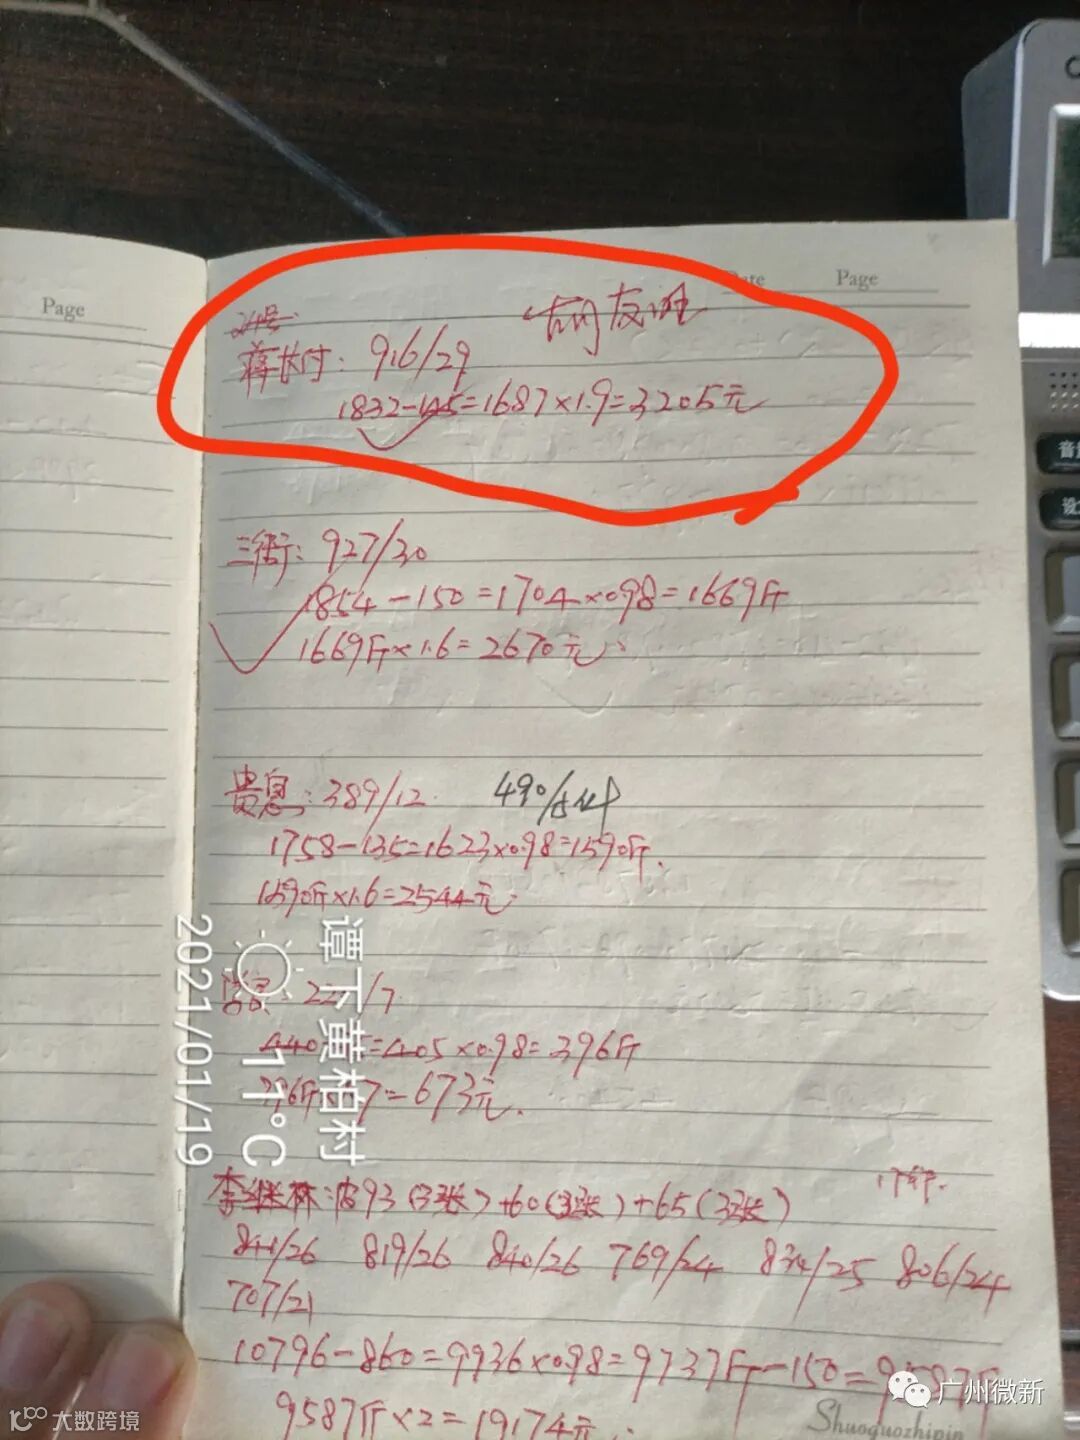 Page
Date Page
蒋长付: 916/29
1832-145=1687×1.9=3205元
三衔: 927/30
1854-150=1704×0.98=1669斤
1669斤×1.6=2670元
贵息: 389/12 490/
1758-135=1623×0.98=1590斤.
1590斤×1.6=2544元
/7
440 =405×0.98=396斤
396斤 7=673元.
李继林: 皮93(3张)+60(3张)+65(3张)
841/26 819/26 840/26 769/24 834/25 806/24
707/21
10796-860=9936×0.98=9737斤-150=9587斤
9587斤×2=19174元
Shuoguozhipin
谭下黄柏村
11°C
2021/01/19
音
设
广州微新
大数跨境